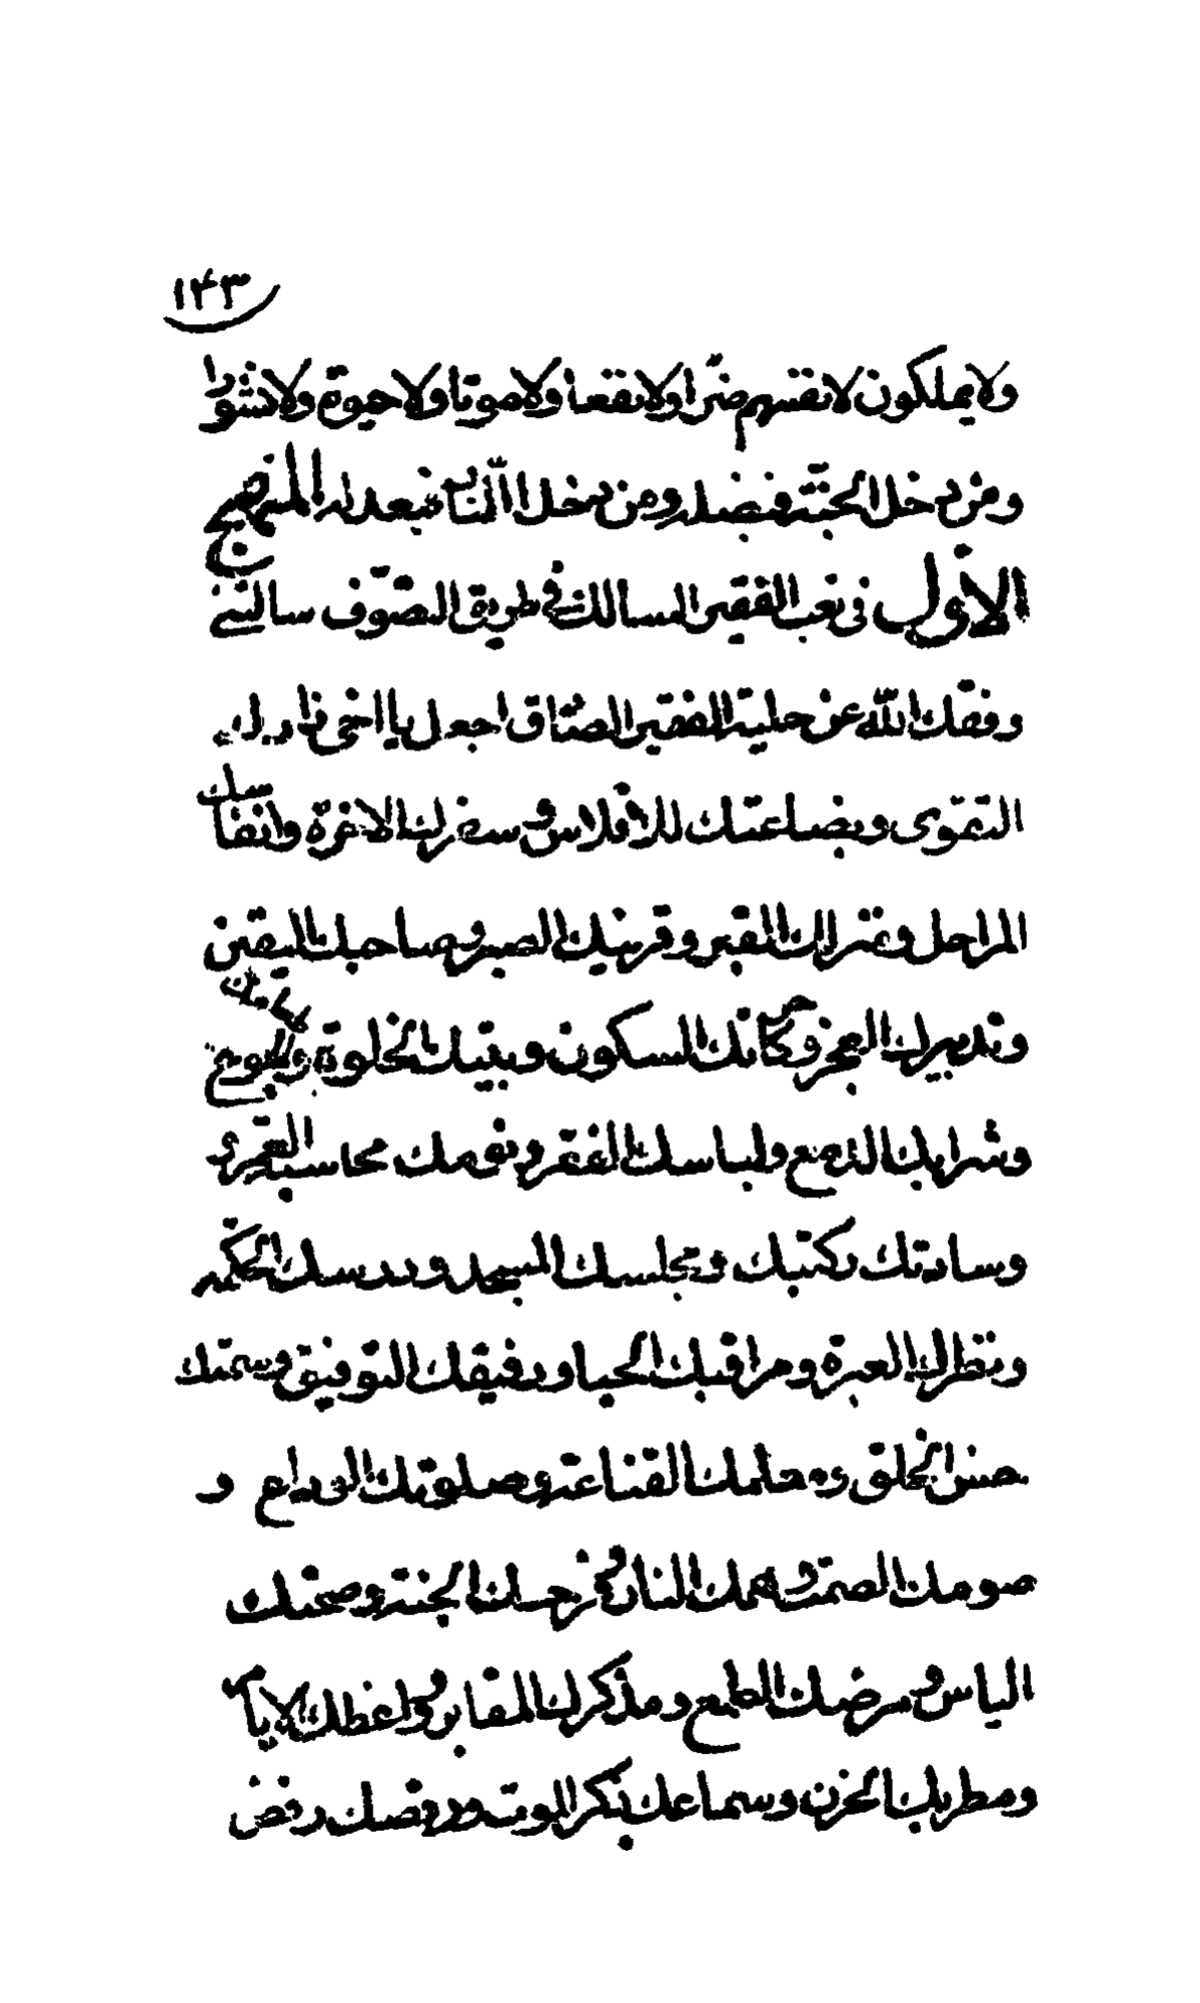 ١٤٣
ولا يملكون لانفسهم ضرّا ولا نفعا ولا موتا ولا حيوة ولا نشورا
ومن يدخل الجنّة فبفضله ومن يدخل النّار فبعدله المنهج
الاوّل في نعت الفقير السالك في طريق التصوّف سالتني
وفقك اللّه عن حلية الفقير الصادق اجعل يا اخي زادك
التقوى وبضاعتك الافلاس وسفرك الاخرة وانفاسك
المراحل ومنزلك القبر وقرينك الصبر وصاحبك اليقين
وتدبيرك العجز وحركاتك السكون وبيتك الخلوة وطعامك الجوع
وشرابك الدمع ولباسك الفقر ونومك محاسبة العمر و
وسادتك ركبتك ومجلسك المسجد ودرسك الحكمة
ونظرك العبرة ومراقبك الحيا ورفيقك التوفيق وسمتك
حسن الخلق ومعلمك القناعة وصلوتك الوداع و
صومك الصمت وهمك النار وفرحك الجنة وصحتك
الياس ومرضك الطمع ومذكرك المقابر وواعظك الايام
ومطربك الحزن وسماعك بذكر الموت ورقصك رفض